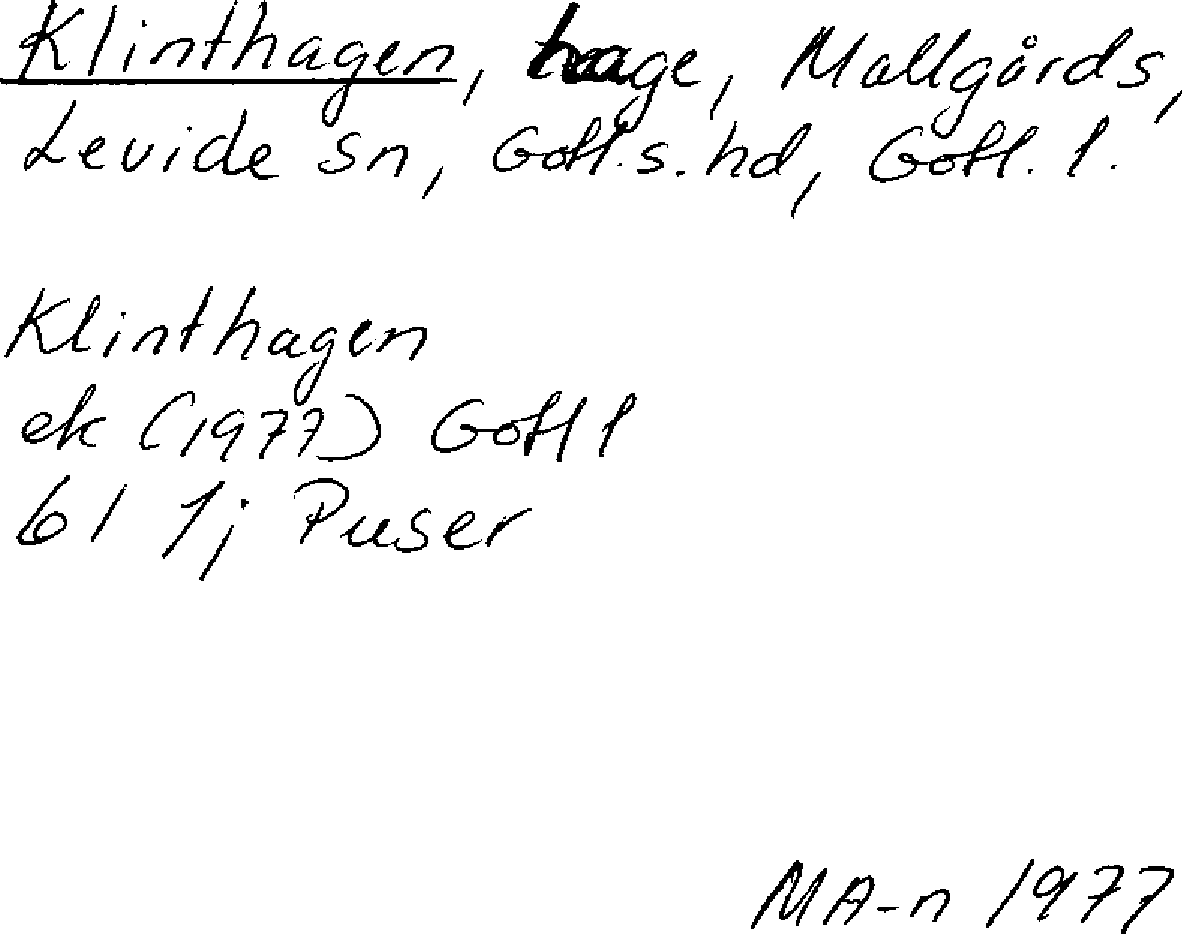 Klinthagen, hage, Mallgårds,
Levide sn, Gotl.s.hd, Gotl. l.
Klinthagen
ek (1977) Gotl l
6I 1j Puser
MA-n 1977